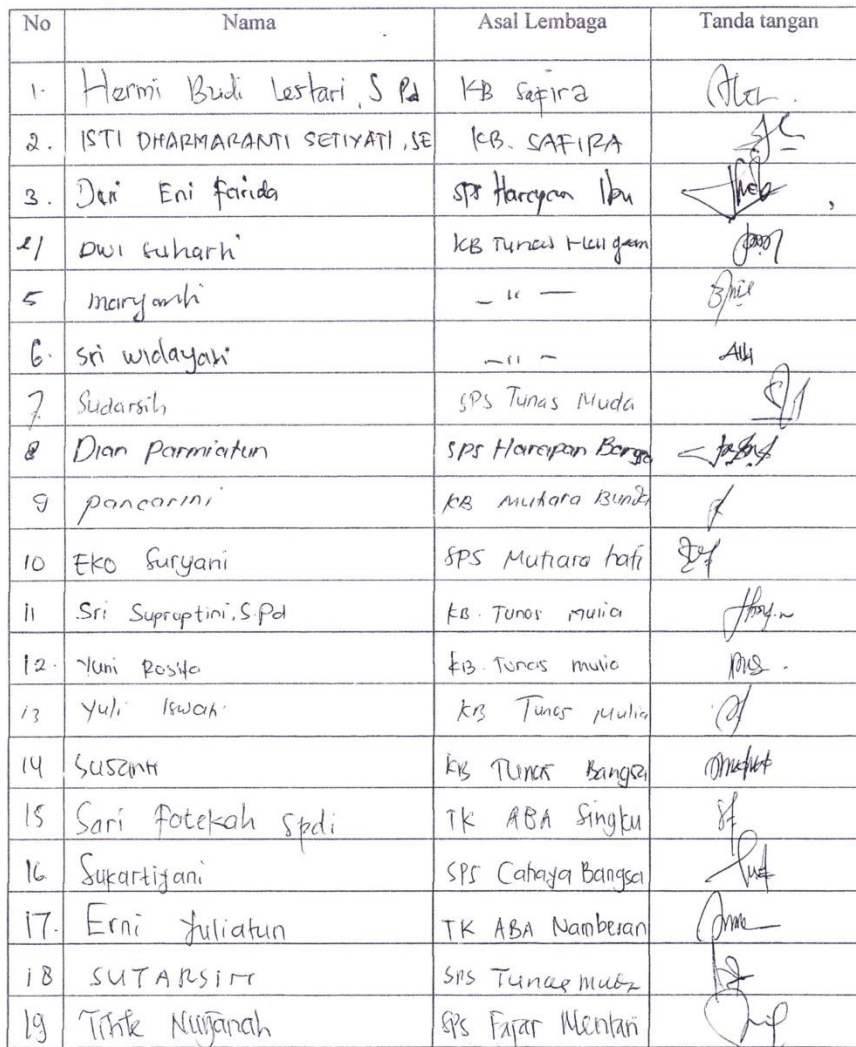 No Nama Asal Lembaga Tanda tangan
1. Hermi Budi Lestari, S Pd KB Safira
2. ISTI DHARMARANTI SETIYATI, SE KB. SAFIRA
3. Dwi Eni Farida SPS Harapan Ibu
4 Dwi Suharti KB Tunas
5 Maryanti – " –
6. Sri Widayati – " –
7 Sudarsih SPS Tunas Muda
8 Dian Parmiatun SPS Harapan Bangsa
9 Pancarini KB Mutiara Bunda
10 Eko Suryani SPS Mutiara hati
11 Sri Supraptini, S.Pd KB. Tunas Mulia
12. Yuni Rosita KB. Tunas mulia
13 Yuli Iswati KB Tunas Mulia
14 Susanti KB Tunas Bangsa
15 Sari Fotekah Spdi TK ABA Singku
16 Sukartiyani SPS Cahaya Bangsa
17. Erni Yuliatun TK ABA Namberan
18 SUTARSIH SPS Tunas
19 Titik Nurjanah SPS Fajar Mentari